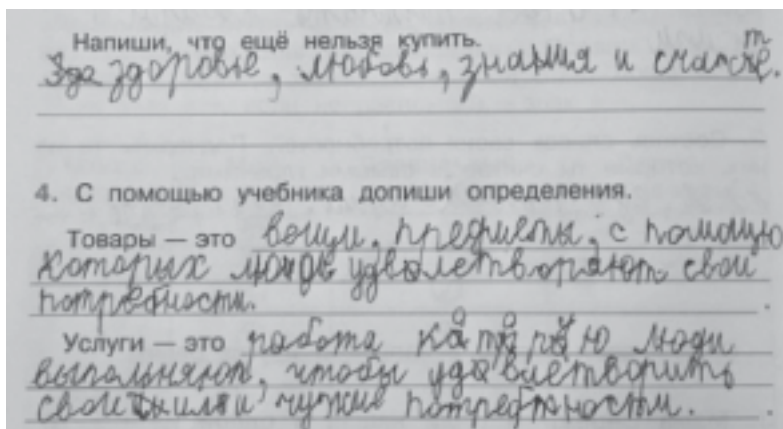 Напиши, что ещё нельзя купить.
Зда здоровье, любовь, знания и счастье.
4. С помощью учебника допиши определения.
Товары — это вещи, предметы, с помощю
которых люди удволетворяют свои
потребности.
Услуги — это работа которую люди
выпольняют, чтобы удовлетворить
свои или чужие потребтности.